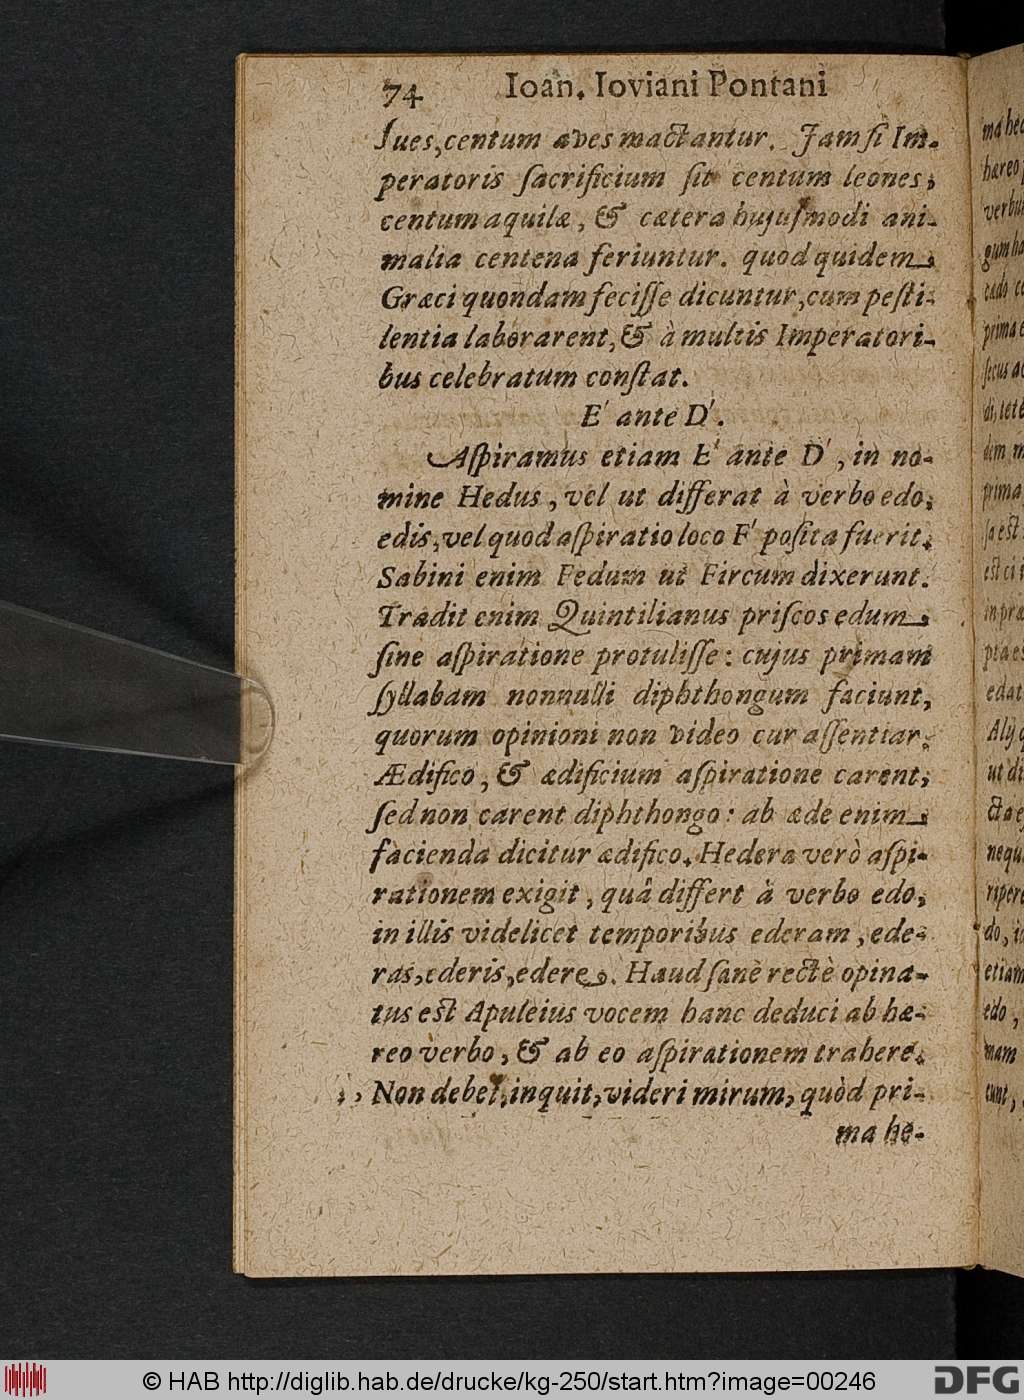 74 Ioan. Ioviani Pontani
ſues, centum aves mactantur. Jam ſi Im-
peratoris ſacrificium ſit centum leones,
centum aquilæ, & cætera hujuſmodi ani-
malia centena feriuntur. quod quidem
Græci quondam feciſſe dicuntur, cum peſti-
lentia laborarent, & à multis Imperatori-
bus celebratum conſtat.
E' ante D'.
Aſpiramus etiam E' ante D', in no-
mine Hedus, vel ut differat à verbo edo,
edis, vel quod aſpiratio loco F' poſita fuerit.
Sabini enim Fedum ut Fircum dixerunt.
Tradit enim Quintilianus priſcos edum
ſine aſpiratione protuliſſe: cujus primam
ſyllabam nonnulli diphthongum faciunt,
quorum opinioni non video cur aſſentiar.
Ædifico, & ædificium aſpiratione carent,
ſed non carent diphthongo: ab æde enim
facienda dicitur ædifico. Hedera verò aſpi-
rationem exigit, quâ differt à verbo edo,
in illis videlicet temporibus ederam, ede-
ras, ederis, edere. Haud ſanè rectè opina-
tus est Apuleius vocem hanc deduci ab hæ-
reo verbo, & ab eo aſpirationem trahere.
,, Non debet, inquit, videri mirum, quòd pri-
ma he-
ma hed
hæreo
gum
prima
ſecus
est ci
in præ
edat
Alij
ut di
cta
nequ
do,
etiam
edo,
mam
eunt,
© HAB http://diglib.hab.de/drucke/kg-250/start.htm?image=00246
DFG